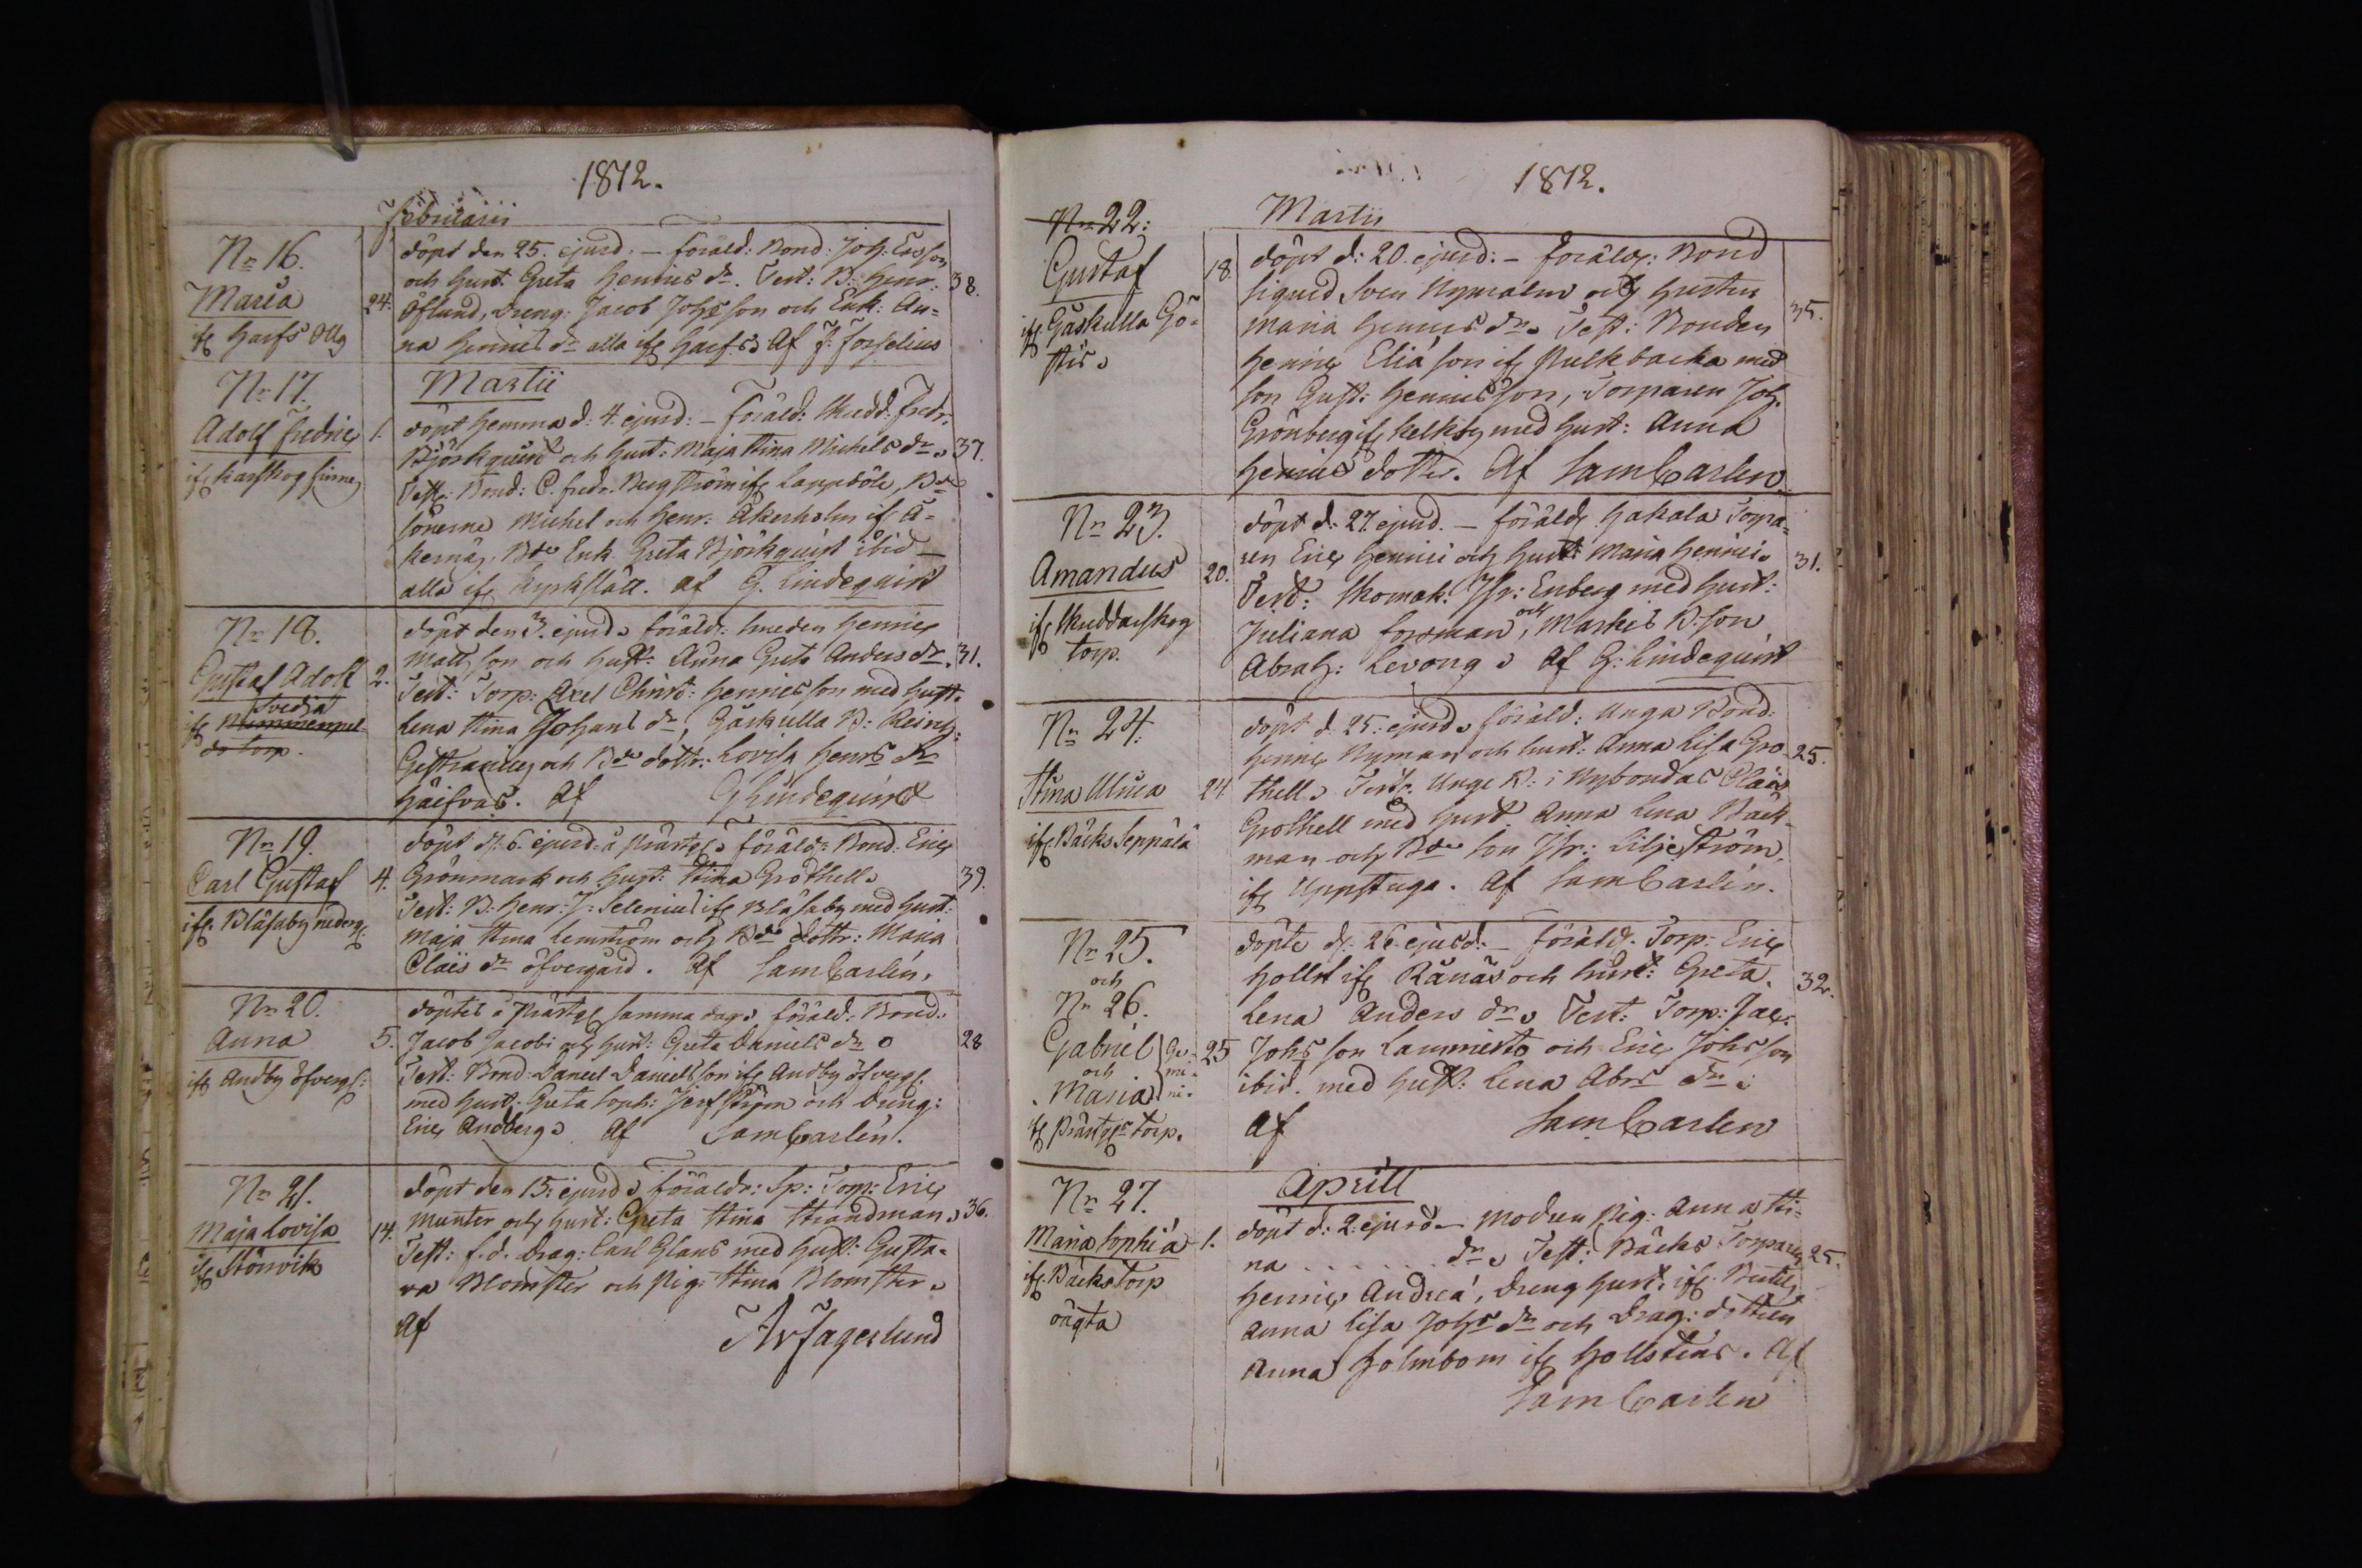 1812.
Februarii
Nr 16.
Maria
24.
ifr Haifs
döpt den 25. ejusd. – föräld: Bond: Joh: Ersson
och hust: Greta Henrics dr. Test: B: Henr:
38.
Öflund, dreng: Jacob Johsson och Enk: An=
na Henrics dr alla ifr Haifs. Af J: Forselius
Martii
Nr 17.
Adolf Fredric
1.
ifr Karskog
döpt hemma d: 4. ejusd: – föräld: Skedd: Fredr:
Björkquist och hust: Maja Stina Michels dr.
37.
Test: Bond: C. Fredr. Bergström ifr Lappböle, Bde
sönerne Michel och Henr: Åkerholm if Å=
kernäs, Bde Enk. Greta Björkquist ibid –
alla ifr Kyrkslätt. af G. Lindequist
Nr 18.
Gustaf Adolf
2.
Svedja
ifr
torp.
döpt den 3. ejusd. föräld: Smeden Henric
Mattsson och hust: Anna Greta Anders dr.
31.
Test: Torp: Axel Christ: Henricsson med hust:
Lena Stina Johans dr, Gäskulla B:
och Bde dottr: Lovisa Henrs dr
Häifvas. Af G Lindequist
Nr 19.
Carl Gustaf
4.
ifr Blåsaby nederg:
döpt d: 6. ejusd: å Prästg: föräld: Bond: Eric
Grönmark och hust: Stina Grothell.
39.
Test: B: Henr: J: Selenius ifr Blåsaby med hust:
Maja Stina Lemström och Bde dottr: Maria
Claes dr öfvergård. Af Sam Carlén.
Nr 20.
Anna
5.
ifr Andby öfverg:
döptes å Prästg: samma dag. föräld: Bond:
Jacob Jacobi och hust: Greta Daniels dr.
28
Test: Bond: Daniel Danielsson ifr Andby öfverg:
med hust: Greta Soph: och dreng:
Eric Andberg. Af Sam Carlén.
Nr 21.
Maja Lovisa
14.
ifr Störsvik
döpt den 15. ejusd. föräldr: Sp: Torp: Eric
Munter och hust: Greta Stina Strandman.
36.
Test: f.d. Drag: Carl Glans med hust: Gusta=
va Blomster och Pig: Stina Blomster.
Af Ar Fagerlund
1812.
Martii
Nr 22:
Gustaf
18.
ifr Gäskulla Gö=
stis.
döpt d: 20. ejusd: – föräldr: Bond
Sigurd Sven Nymalm och hustru
35.
Maria Henrics dr. Test: Bonden
Henric Eliä son ifr Pulkbacka med
son Gust: Henricsson, Torparen Joh.
Grönberg ifr Kelkby med hust: Anna
Henrics dotter. Af Sam Carlén
Nr 23.
Amandus
20.
ifr Skuddarskog
torp.
döpt d: 27. ejusd. – föräld: Hakala Torpa=
ren Eric Henrici och hust: Maria Henrici.
31.
Test: Skomak: Isr: Enberg med hust:
Juliana Forsman, och Markis B: son
Abrah: Levong. Af G: Lindequist
Nr 24.
Stina Ulrica
24
ifr Bäcks Seppälä
döpt d 25. ejusd. föräld: Unga Bond:
Henric Nyman och hust: Anna Lisa Gro
25.
thell. Test: Unge B: i Nybondas Claes
Grothell med hust: Anna Lena Back=
man och Bde son Isr: Liljeström,
ifr Uppstuga. Af Sam Carlén.
Nr 25.
och
Nr 26.
Gabriel
och
Maria
Ge=
mi=
ni.
25
ifr Prästgs torp.
döpte d: 26 ejusd: – föräld: Torp: Eric
Hollst ifr Rånäs och hust: Greta
32.
Lena Anders dr. Test: Torp: Jac:
Johs son Lammesto och Eric Johsson
ibid. med hust: Lena Abrs dr.
Af Sam Carlén
Aprill
Nr 27.
Maria Sophia
1.
ifr Bäcks torp
oägta
döpt d: 2. ejusd – modren Pig: Anna Sti=
na . . . . . . dr. Test: Bäcks Torparen
25.
Henric Andreä, dreng hust: ifr
Anna Lisa Johs dr och Drag: dottren
Anna Holmbom ifr Hollstens. Af
Sam Carlén